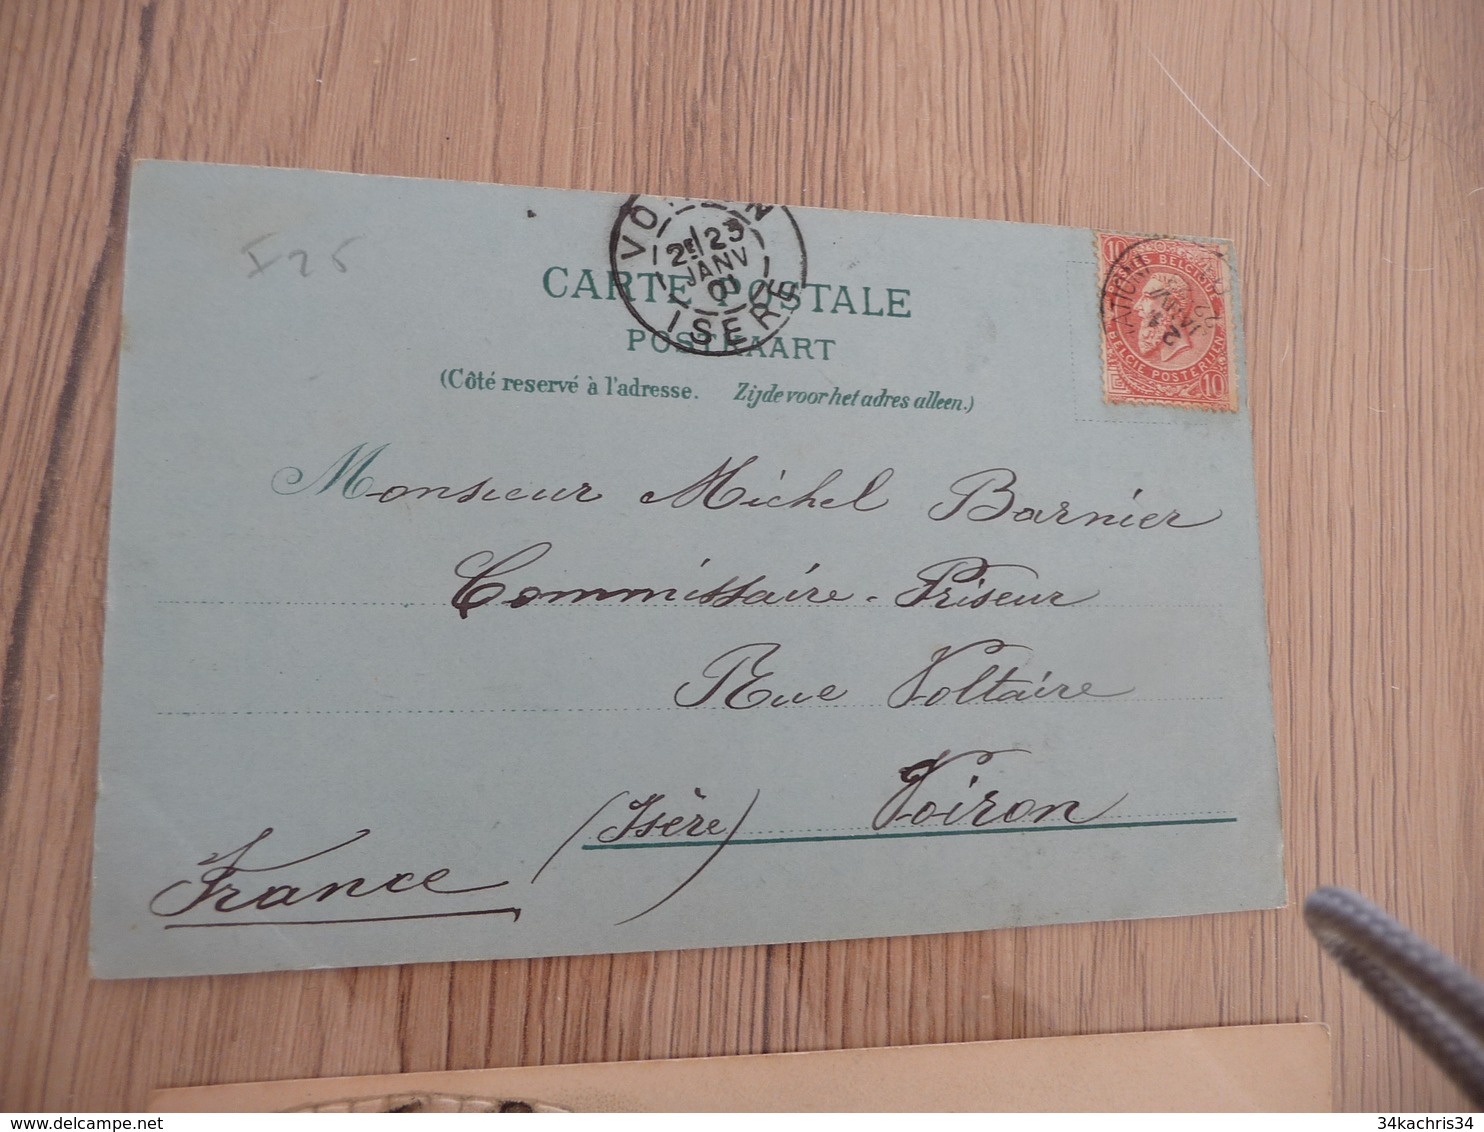 I 25
VOIRON
2E 23
JANV
01
ISÈRE
CARTE POSTALE
POSTKAART
(Côté reservé à l'adresse. Zijde voor het adres alleen.)
10 POSTES BELGIQUE
BELGIE POSTERIJEN 10
Monsieur Michel Barnier
Commissaire-Priseur
Rue Voltaire
(Isère) Voiron
France
34kachris34